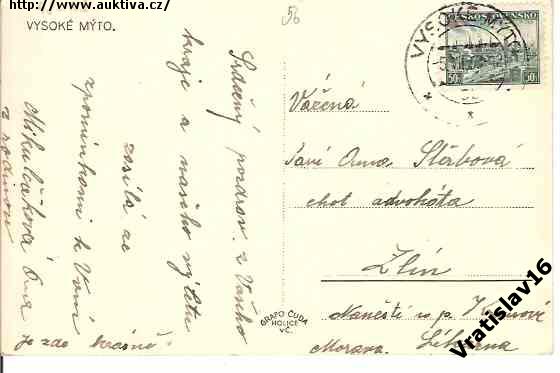 http://www.auktiva.cz/
56
VYSOKÉ MÝTO.
Srdečný pozdrav z Vašeho
kraje a našeho výletu
zasílá ze
vzpomínkami k Vám
Mikulčáková Ena
z rodinou
je zde krásně!
GRAFO ČUDA
HOLICE
V Č.
VYSOKÉ MÝTO
ČESKOSLOVENSKO
50
Vážená
Paní Anna Štěrbová
choť advokáta
Zlín
Náměstí
Morava.
Vratislav16